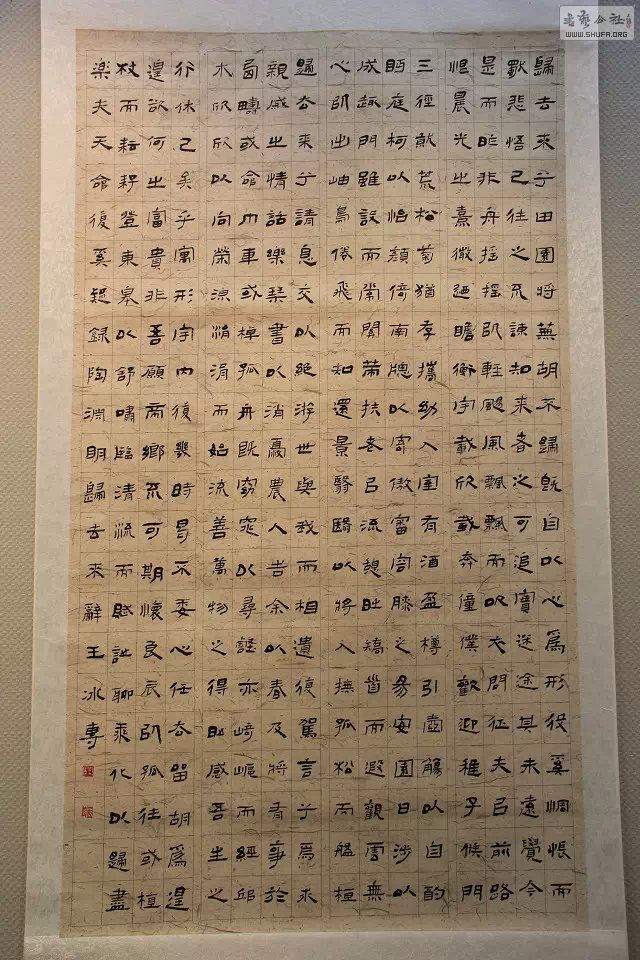 歸去來兮田園將蕪胡不歸既自以心為形役奚惆悵而
獨悲悟已往之不諫知來者之可追實迷途其未遠覺今
是而昨非舟搖搖以輕颺風飄飄而吹衣問征夫以前路
恨晨光之熹微迺瞻衡宇載欣載奔僮僕歡迎稚子候門
三徑就荒松菊猶存攜幼入室有酒盈樽引壺觴以自酌
眄庭柯以怡顏倚南牕以寄傲審容膝之易安園日涉以
成趣門雖設而常關策扶老以流憩時矯首而遐觀雲無
心以出岫鳥倦飛而知還景翳翳以將入撫孤松而盤桓
歸去來兮請息交以絕游世與我而相遺復駕言兮焉求
親戚之情話樂琴書以消憂農人告余以春及將有事於
西疇或命巾車或棹孤舟既窈窕以尋壑亦崎嶇而經邱
木欣欣以向榮泉涓涓而始流善萬物之得時感吾生之
行休已矣乎寓形宇內復幾時曷不委心任去留胡為遑
遑欲何之富貴非吾願帝鄉不可期懷良辰以孤往或植
杖而耘耔登東皋以舒嘯臨清流而賦詩聊乘化以歸盡
樂夫天命復奚疑錄陶淵明歸去來辭王冰專
书艺公社
WWW.SHUFA.ORG